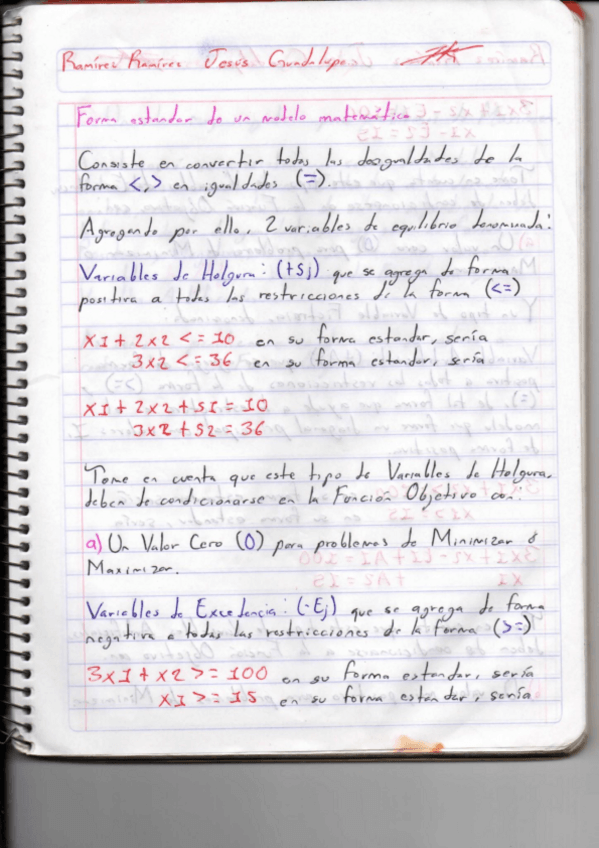 Ramírez Ramírez Jesús Guadalupe
Forma estandar de un modelo matemático
Consiste en convertir todas las desigualdades de la
forma <,> en igualdades (=).
Agregando por ello, 2 variables de equilibrio denominada:
Variables de Holgura: (+Sj) que se agrega de forma
positiva a todas las restricciones de la forma (<=)
x1 + 2x2 <= 10 en su forma estandar, sería
3x2 <= 36 en su forma estandar, sería
x1 + 2x2 + S1 = 10
3x2 + S2 = 36
Tome en cuenta que este tipo de Variables de Holgura,
deben de condicionarse en la Función Objetivo con:
a) Un Valor Cero (0) para problemas de Minimizar ó
Maximizar.
Variables de Excedencia: (-Ej) que se agrega de forma
negativa a todas las restricciones de la forma (>=)
3x1 + x2 >= 100 en su forma estandar, sería
x1 >= 15 en su forma estandar, sería